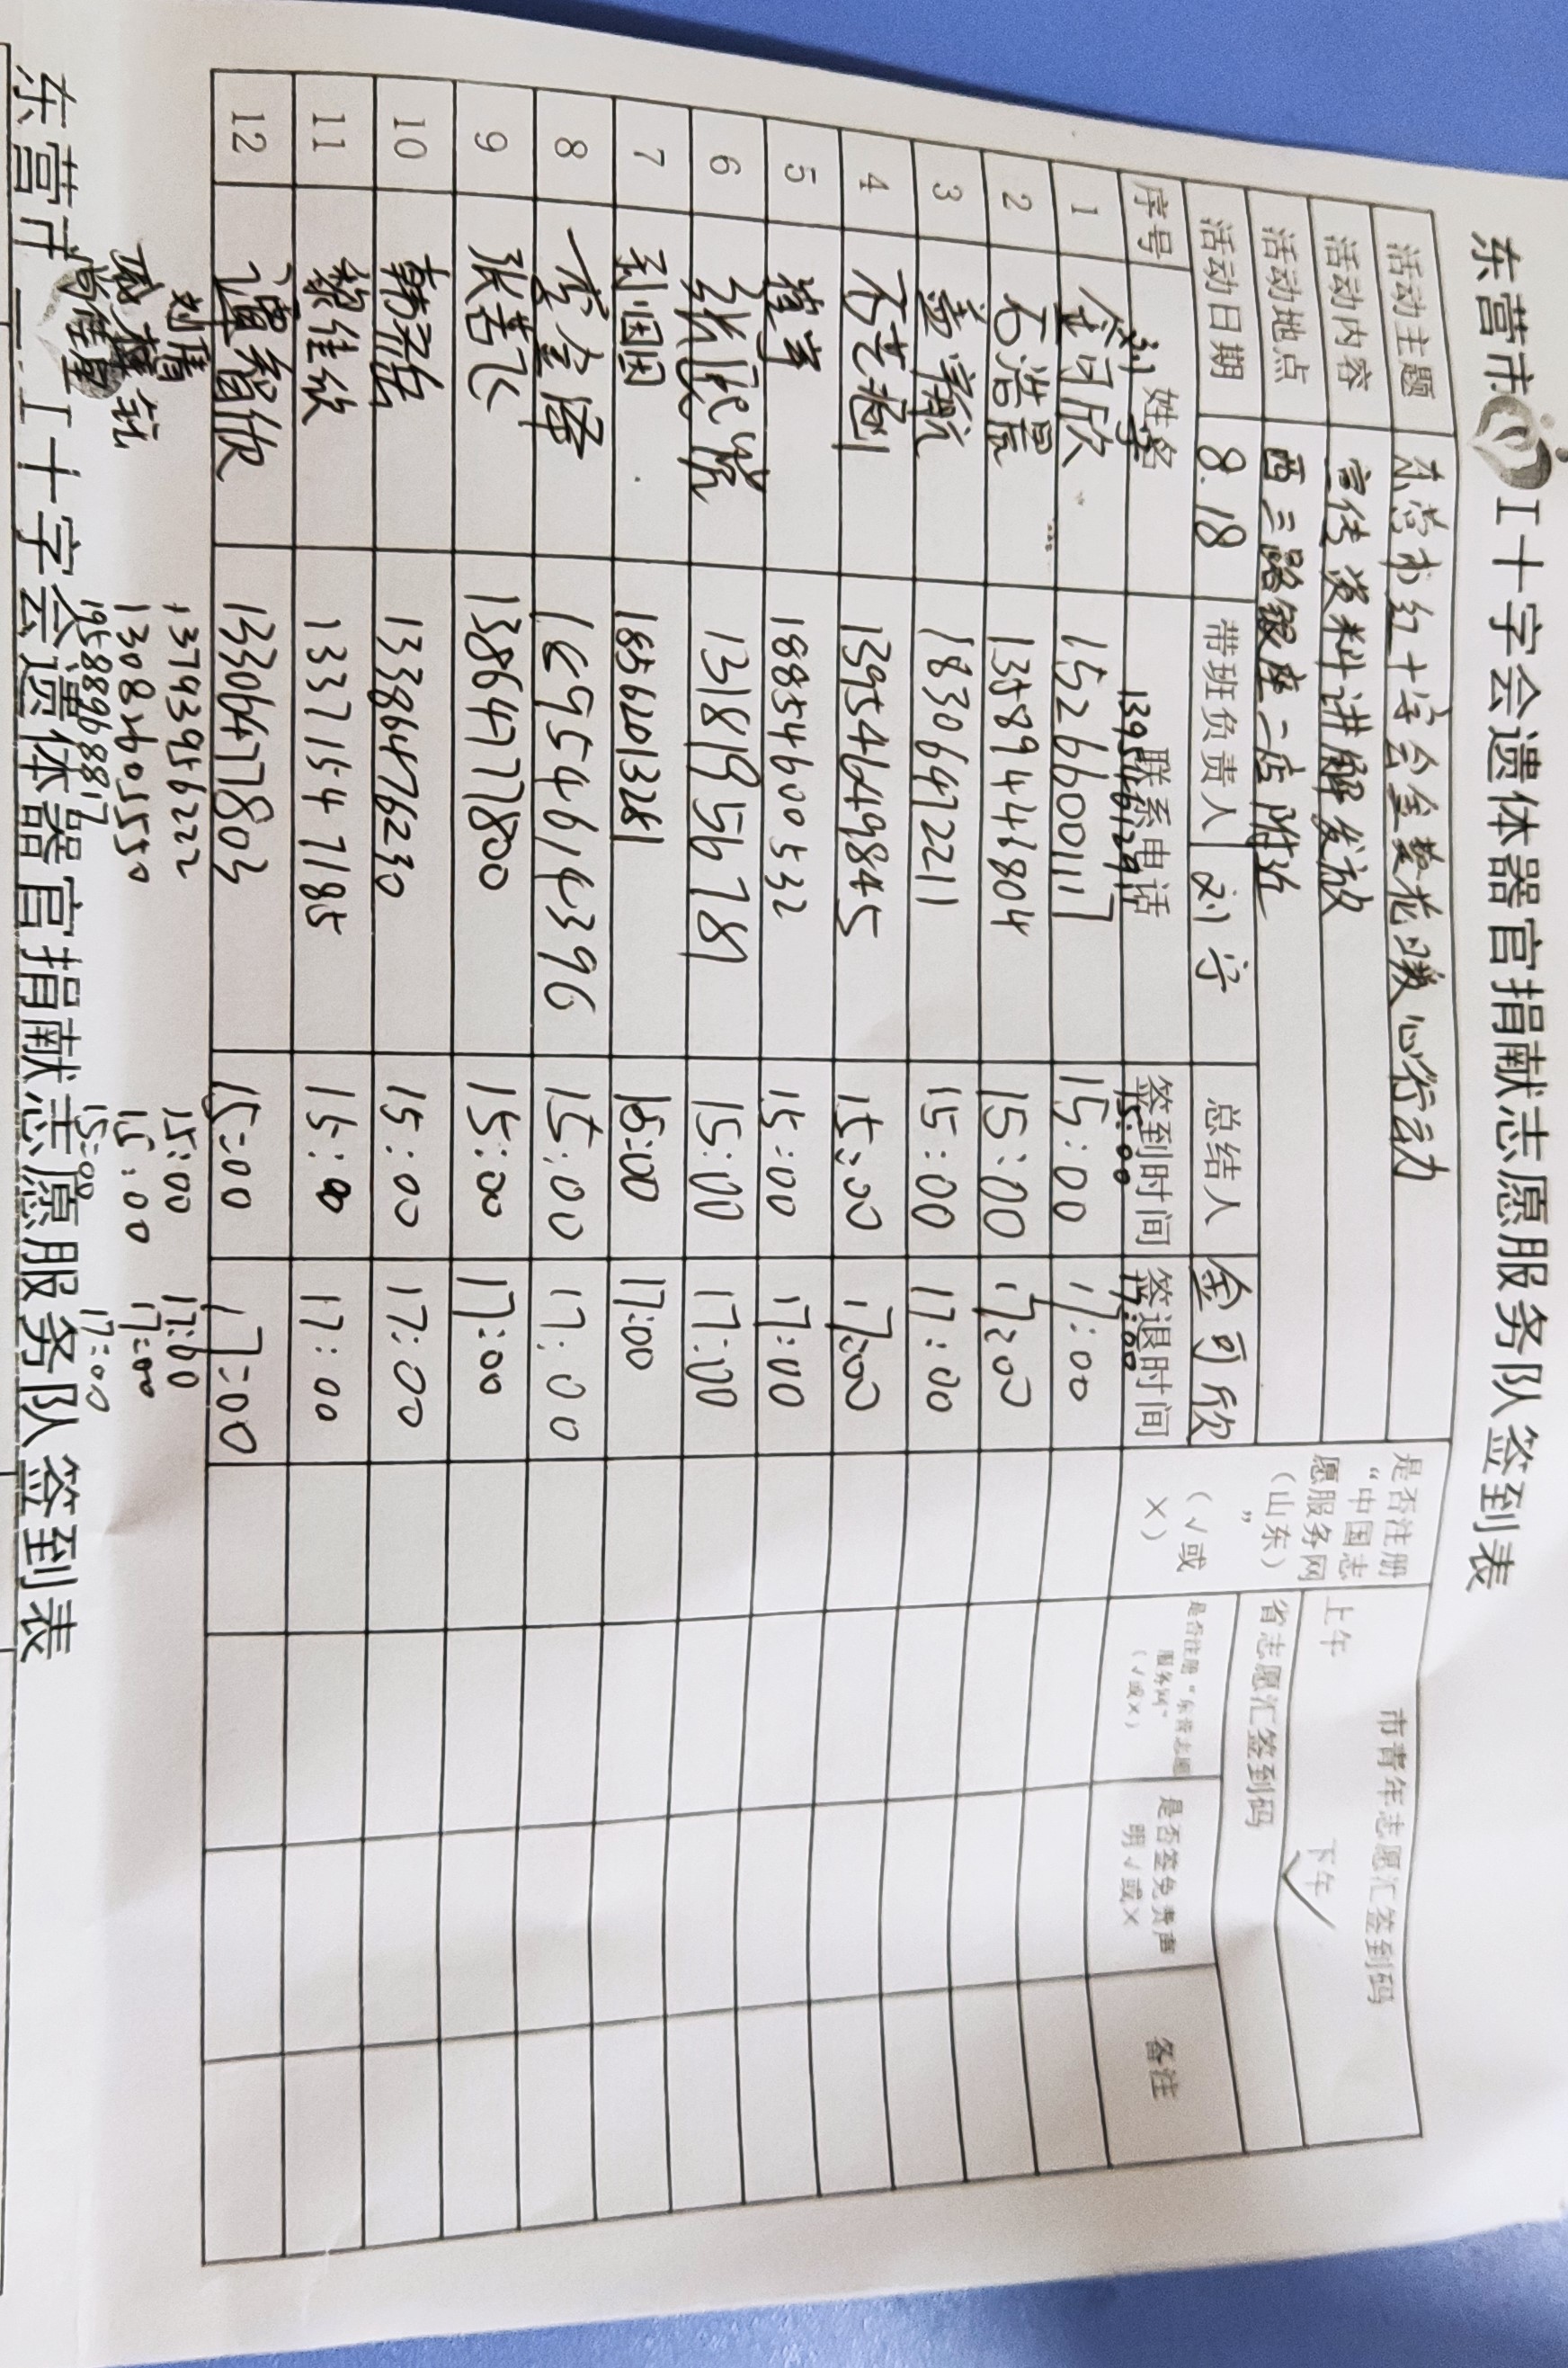 东营市 工十字会遗体器官捐献志愿服务队签到表
活动主题 东营市红十字会金葵花暖心行动 是否注册“中国志愿服务网（山东）”（√或X） 市青年志愿汇签到码
活动内容 宣传资料讲解发放 上午 下午√
活动地点 西三路银座二店附近 省志愿汇签到码
活动日期 8.18 带班负责人 刘宁 总结人 金可欣
序号 姓名 联系电话 签到时间 签退时间 是否注册“东营志愿服务网”（√或X） 是否签免责声明√或X 备注
刘宁 15:00 17:00
1 金可欣 15266001117 15:00 17:00
2 石浩晨 13589446804 15:00 17:00
3 姜 航 18306472211 15:00 17:00
4 石艺 13954649845 15:00 17:00
5 18854600532 15:00 17:00
6 张 13181956789 15:00 17:00
7 孙因因 18562013281 15:00 17:00
8 李金泽 16954614396 15:00 17:00
9 张若飞 13864717800 15:00 17:00
10 韩 13386476230 15:00 17:00
11 佳欣 13371547185 15:00 17:00
12 智欣 13306471803 15:00 17:00
刘腾 13793956222 15:00 17:00
15:00 17:00
19588968817 15:00 17:00
东营市 工十字会遗体器官捐献志愿服务队签到表